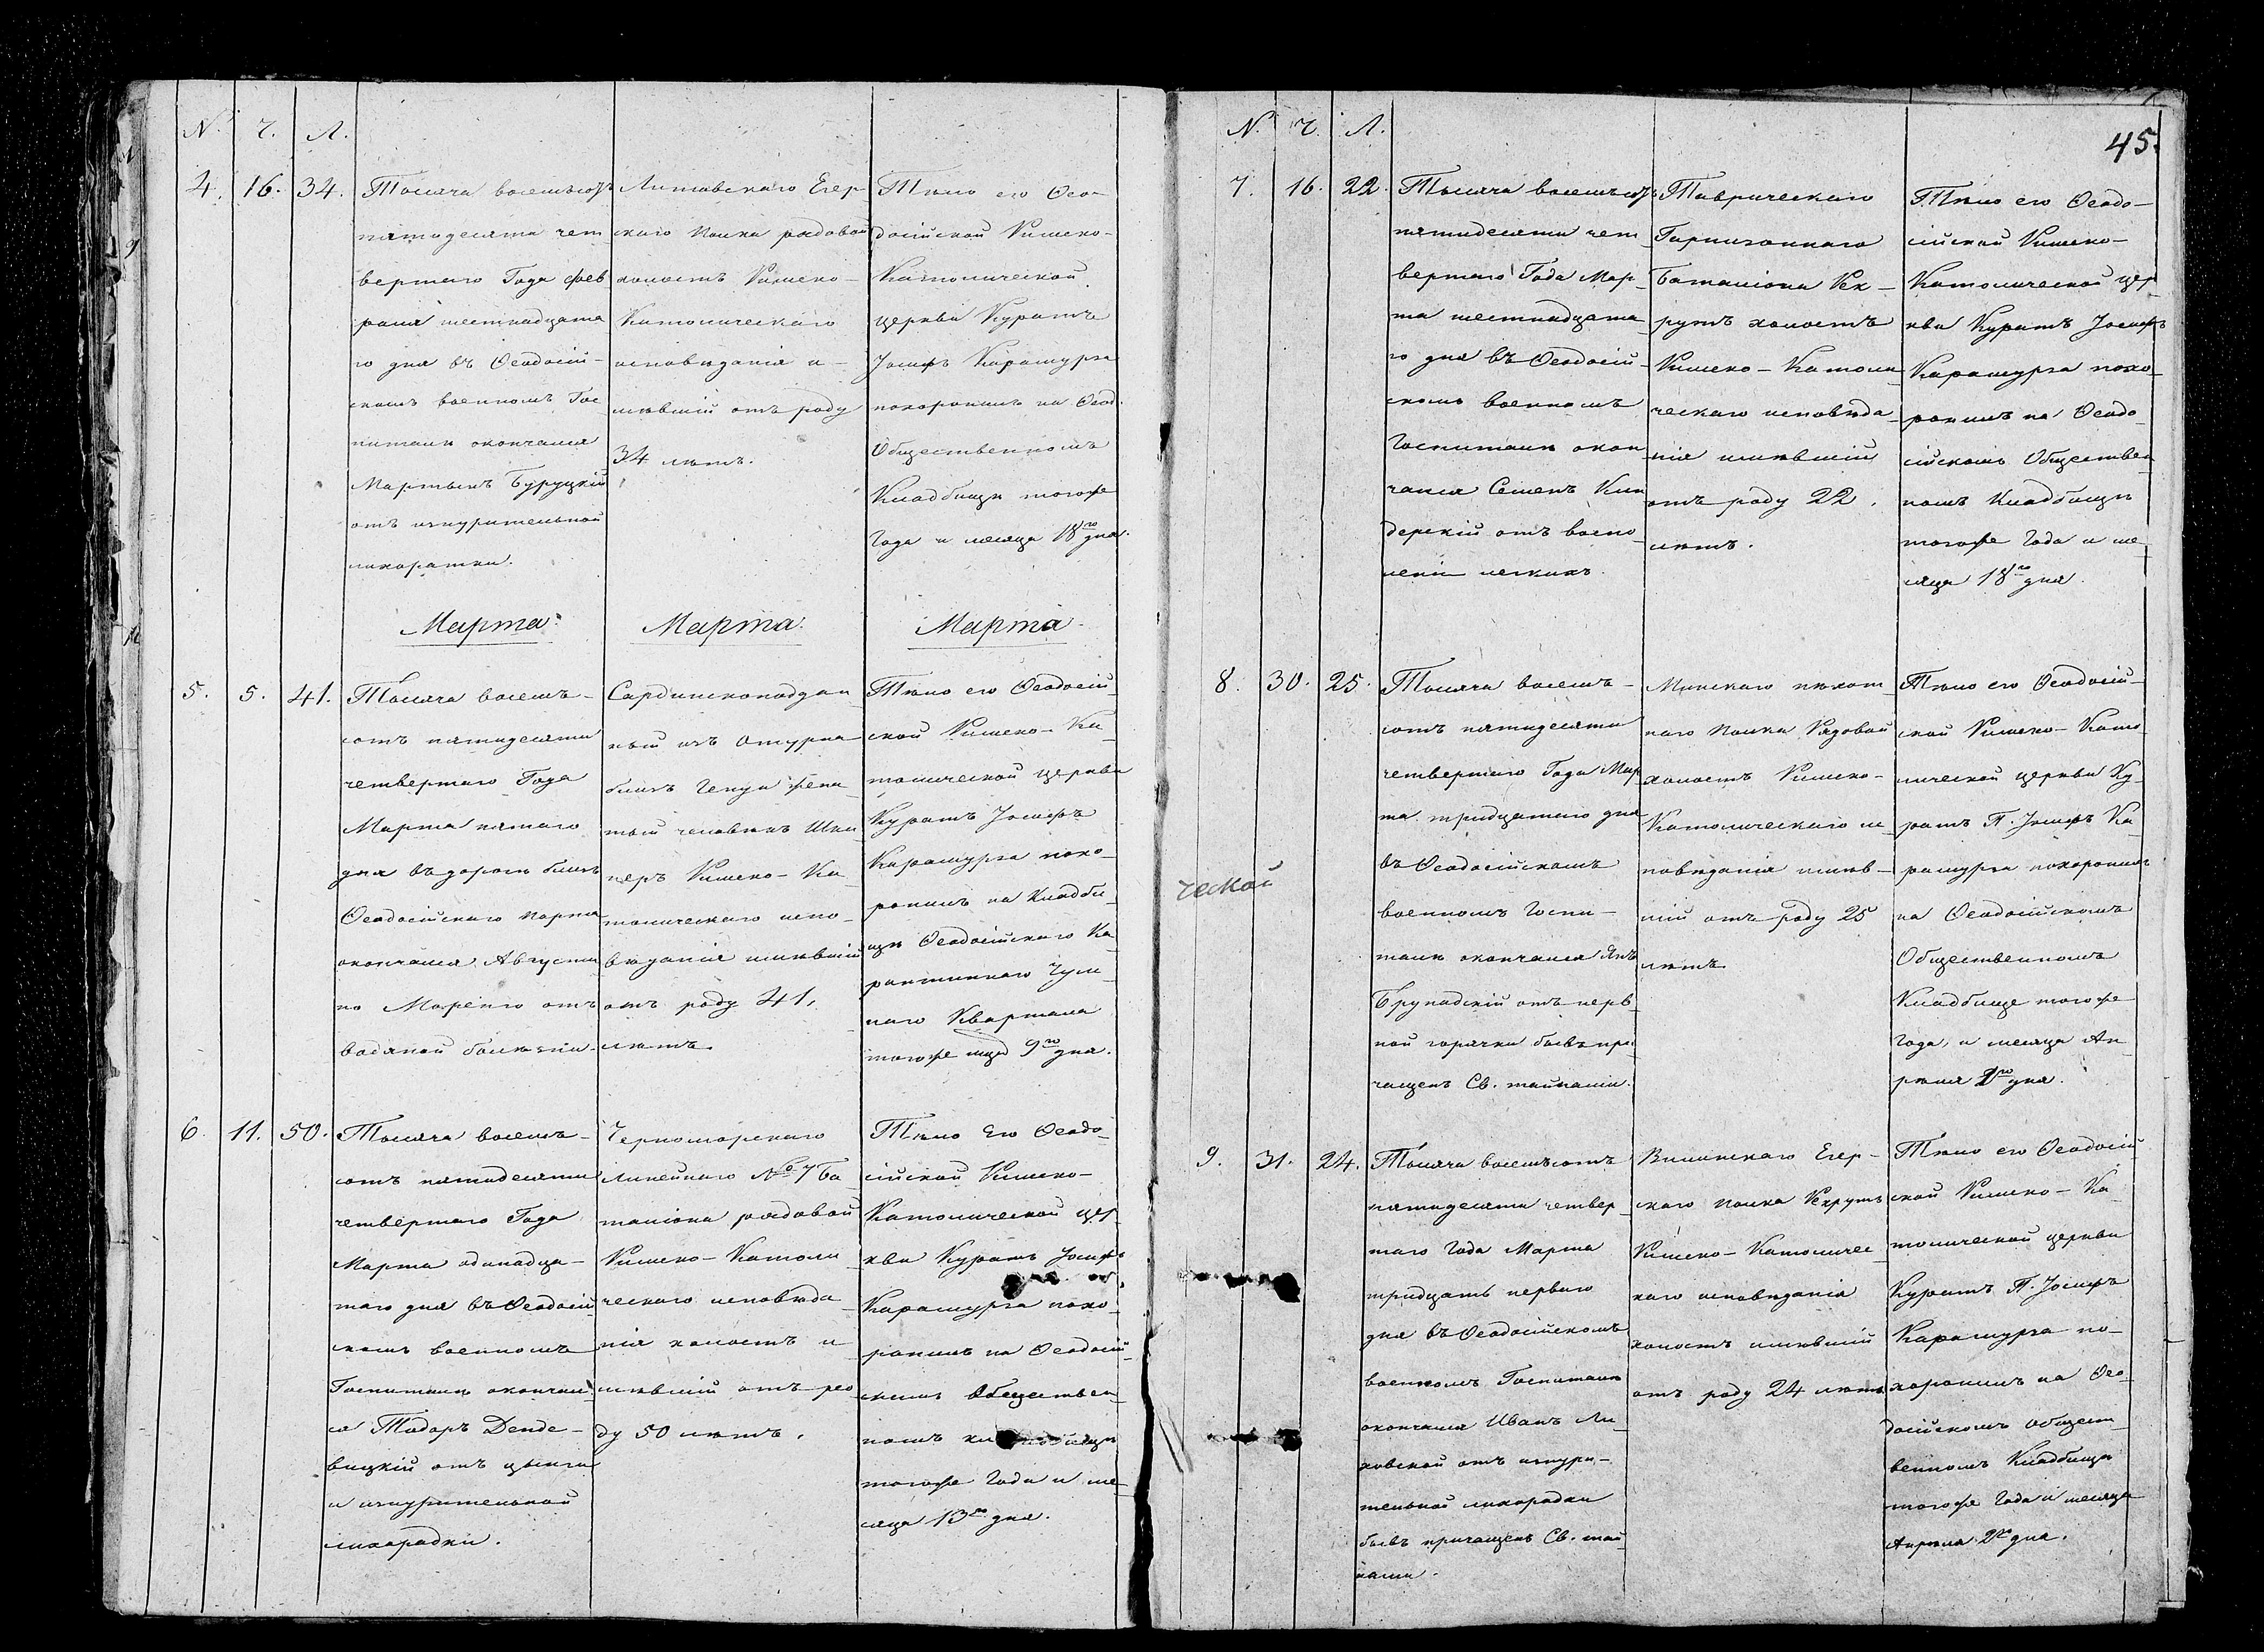 N. Ч. Л.
4. 16. 34.
Тысяча восемьсотъ
пятьдесята чет
вертаго Года фев
раля шестнадцата
го дня въ Ѳеодосій-
скомъ военномъ Гос
питали окончался
Мартынъ Буруцкій
отъ изнурительной
лихоратки.
Литовскаго Егер-
скаго Полка рядовой
холостъ Римско-
Католическаго
исповѣданія и-
мѣвшій отъ роду
34 лѣтъ.
Тѣло его Ѳео-
досійской Римско-
Католической
церкви Куратъ
Іосифъ Карашурза
похоронилъ на Ѳеод.
Общественномъ
Кладбищѣ тогоже
Года и месяца 18го дня.
Марта.
Марта.
Марта.
5. 5. 41.
Тысяча восемь-
сотъ пятидесяти
четвертаго Года
Марта пятаго
дня въ дорогѣ близъ
Ѳеодосійскаго порта
окончался Августи
но Маренго отъ
водяной болѣзни.
Сардинскоподдан
ный изъ
близъ Генуи жена
тый человѣкъ Шки
перъ Римско-Ка
толическаго испо-
вѣданія имѣвшій
отъ роду 41,
лѣтъ.
Тѣло его Ѳеодосій
ской Римско-Ка
толической церкви
Куратъ Іосифъ
Карашурза похо-
ронилъ на Кладби
щѣ Ѳеодосійскаго Ка
рантиннаго Чум-
наго Квартала
тогоже мца 9го дня.
6. 11. 50.
Тысяча восемь-
сотъ пятидесяти
четвертаго Года
Марта одинадца-
таго дня въ Ѳеодосій
скомъ военномъ
Госпитали окончал
ся Тадоръ Денде-
вицкій отъ цынги
и изнурительной
лихорадки.
Черноморскаго
линейнаго № 7 Ба
таліона рядовой
Римско-Католи
ческаго исповѣда
нія холостъ и
мѣвшій отъ ро
ду 50 лѣтъ.
Тѣло Его Ѳеодо
сійской Римско-
Католической цер
кви Куратъ Іосифъ
Карашурза похо
ронилъ на Ѳеодосій
скомъ Обществен
номъ
тогоже Года и ме
сяца 13го дня.
45.
N. Ч. Л.
7. 16. 22.
Тысяча восемьсотъ
пятидесяти чет
вертаго Года Мар-
та шестнадцата
го дня въ Ѳеодосій-
скомъ военномъ
Госпитали окон
чался Семенъ Кин
дерскій отъ воспо
ленія легкихъ.
Таврическаго
Гарнизоннаго
Баталіона Рек-
рутъ холостъ
Римско-Католи
ческаго исповѣда
нія имѣвшій
отъ роду 22.
лѣтъ.
Тѣло его Ѳеодо-
сійской Римско-
Католической цер
кви Куратъ Іосифъ
Карашурза похо-
ронилъ на Ѳеодо
сійскомъ Обществен
номъ Кладбищѣ
тогоже Года и ме
сяца 18го дня.
8. 30. 25.
Тысяча восемь-
сотъ пятидесяти
четвертаго Года Мар
та тридцатаго дня
въ Ѳеодосійскомъ
военномъ Госпи-
тали окончался Янъ
Брунадскій отъ нерв
ной горячки бывъ при
чащенъ Св. тайнами.
Минскаго пѣхот
наго Полка Рядовой
холостъ Римско-
Католическаго ис
повѣданія имѣв-
шій отъ роду 25
лѣтъ
Тѣло его Ѳеодосій-
ской Римско-Като
лической церкви Ку
ратъ П. Іосифъ Ка
рашурза похоронилъ
на Ѳеодосійскомъ
Общественномъ
Кладбище тогоже
Года, и месяца Ап
рѣля 1го дня.
ческой
9. 31. 24.
Тысяча восемьсотъ
пятидесяти четвер
таго Года Марта
тридцать перваго
дня въ Ѳеодосійскомъ
военномъ Госпитали
окончался Иванъ Ли
ховской отъ изнури-
тельной лихорадки
бывъ причащенъ Св. тай
нами.
Виленскаго Егер-
скаго Полка Рекрутъ
Римско-Католичес
каго исповѣданія
холостъ имѣвшій
отъ роду 24 лѣтъ
Тѣло его Ѳеодосій
ской Римско-Ка
толической церкви
Куратъ П. Іосифъ
Карашурза по-
хоронилъ на Ѳео
досійскомъ общест
венномъ Кладбищѣ
тогоже Года и месяца
Апрѣля 2го дня.